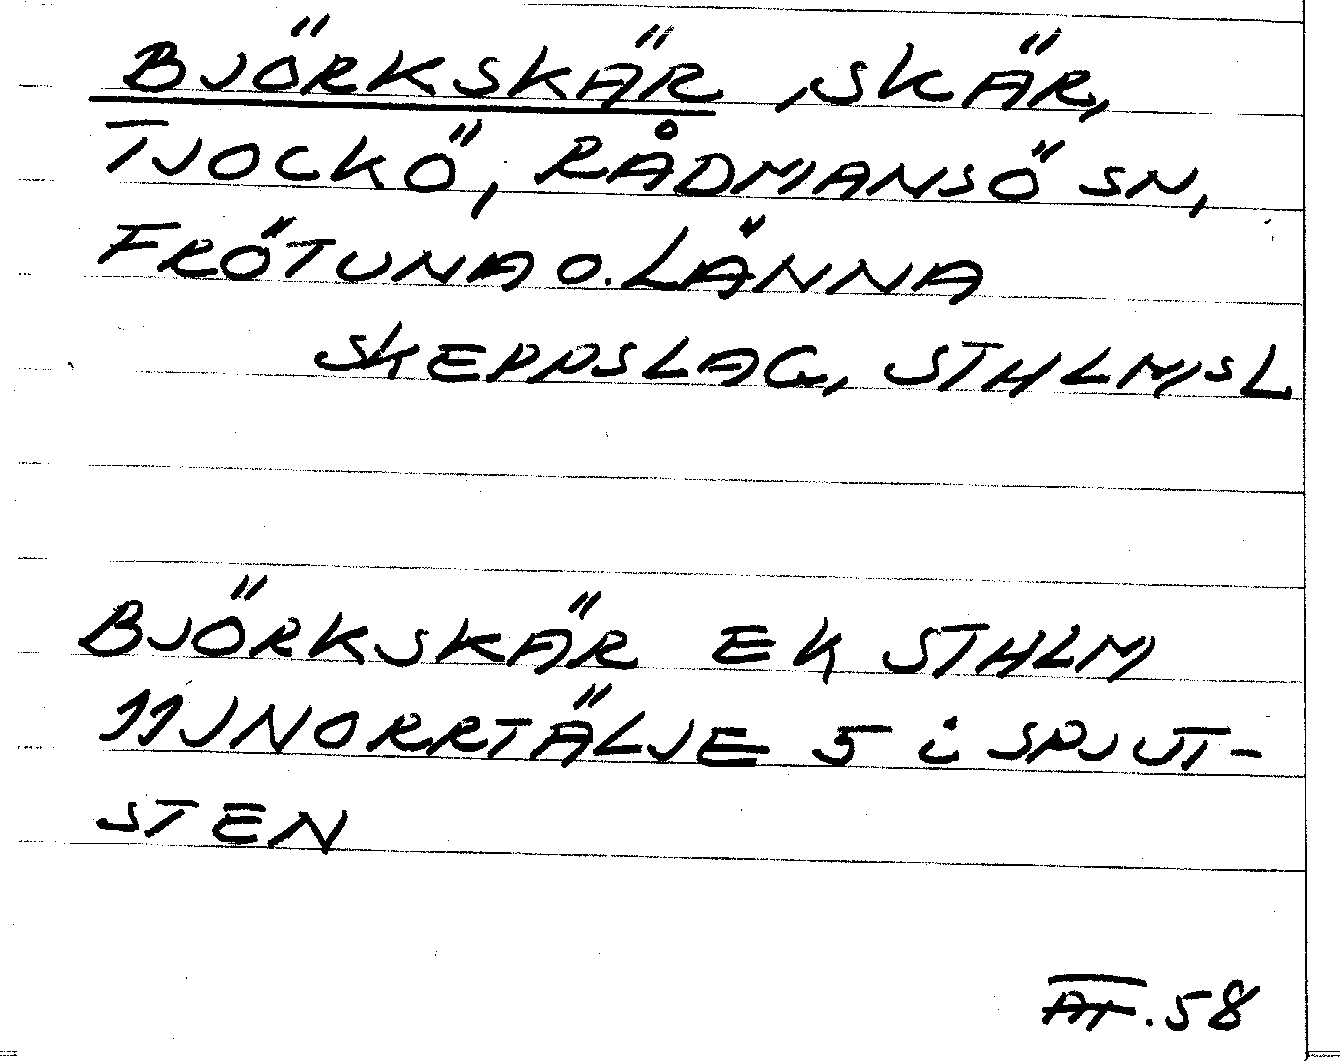 BJÖRKSKÄR, SKÄR,
TJOCKÖ, RÅDMANSÖ SN,
FRÖTUNA O. LÄNNA
SKEPPSLAG, STHLMSL
BJÖRKSKÄR EK STHLM
11J NORRTÄLJE 5 i SPJUT-
STEN
58